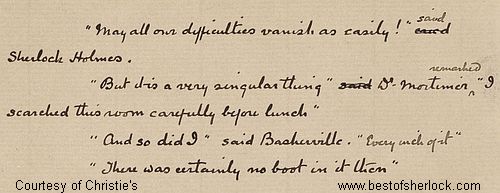 "May all our difficulties vanish as easily!" said
Sherlock Holmes.
"But it is a very singular thing" said Dr. Mortimer, remarked "I
searched this room carefully before lunch"
"And so did I" said Baskerville. "Every inch of it"
"There was certainly no boot in it then"
Courtesy of Christie's www.bestofsherlock.com